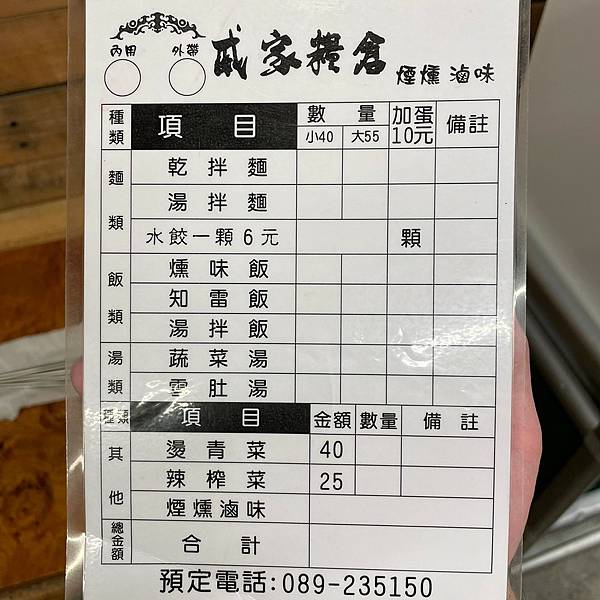 內用 外帶 戚家糧倉 煙燻滷味
種類 項目 數量 小40 大55 加蛋10元 備註
麵類
乾拌麵
湯拌麵
水餃一顆6元 顆
飯類
燻味飯
知雷飯
湯拌飯
湯類
蔬菜湯
雪肚湯
種類 項目 金額 數量 備註
其他
燙青菜 40
辣榨菜 25
煙燻滷味
總金額 合計
預定電話:089-235150